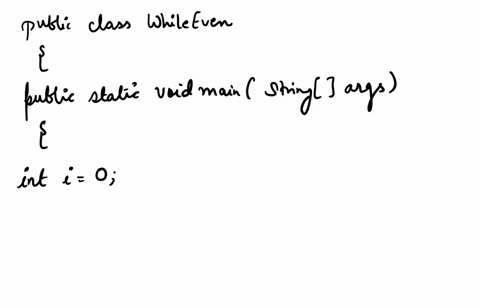 public class WhileEven
{
public static void main( String[] args)
{
int i = 0;